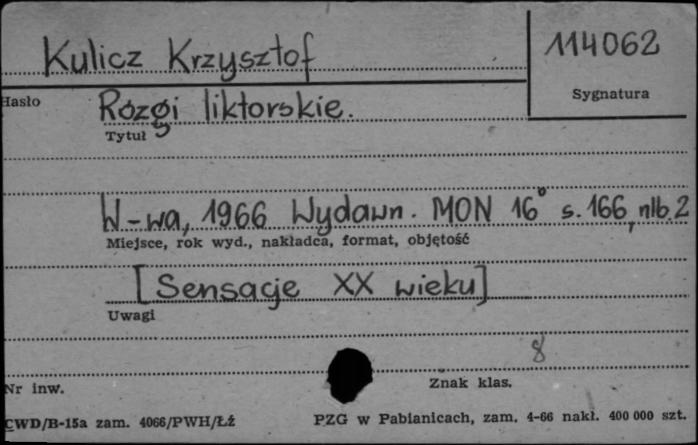 Kulicz Krzysztof
114062
Hasło
Sygnatura
Rózgi liktorskie.
Tytuł
W-wa, 1966 Wydawn. MON 16° s. 166, nlb. 2
Miejsce, rok wyd., nakładca, format, objętość
[Sensacje XX wieku]
Uwagi
8
Nr inw.
Znak klas.
CWD/B-15a zam. 4066/PWH/Łź
PZG w Pabianicach, zam. 4-66 nakł. 400 000 szt.